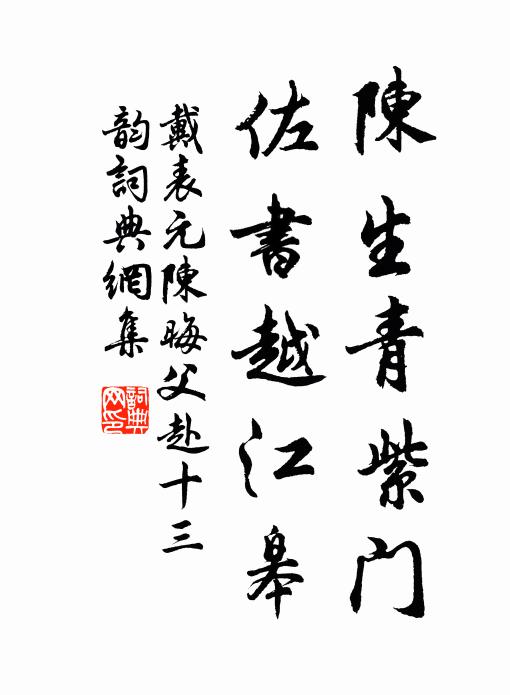 陳生青紫門
佐書越江皋
戴表元陳晦父赴十三
韵詞典網集
詞典
网印